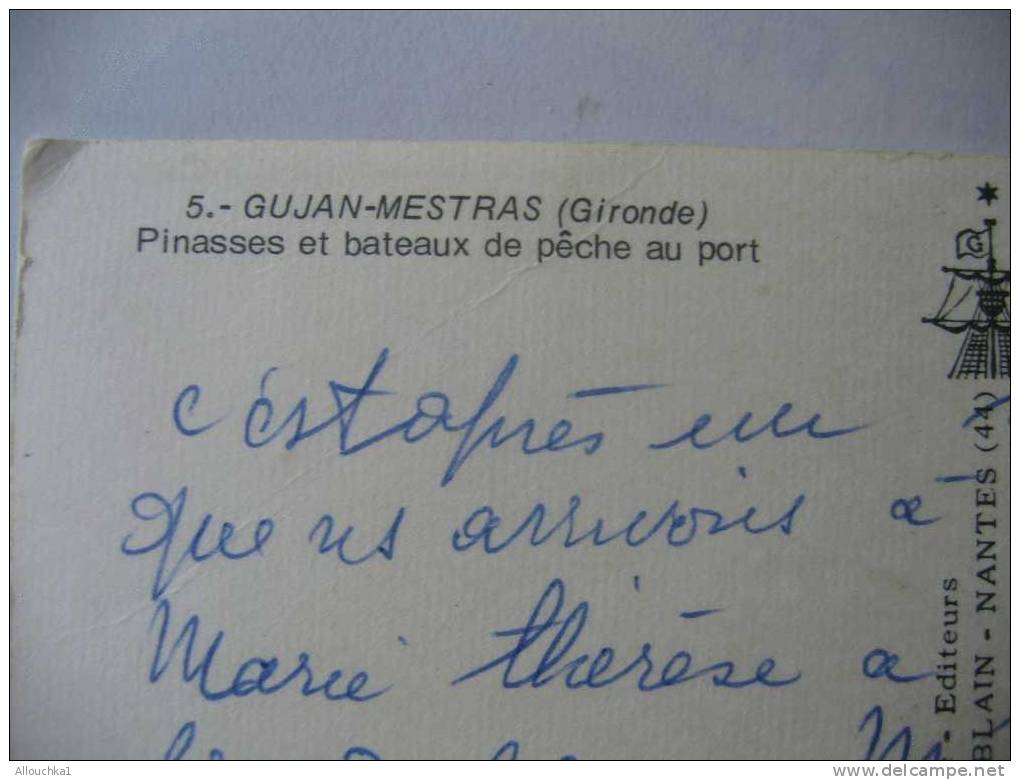 5.- GUJAN-MESTRAS (Gironde)
Pinasses et bateaux de pêche au port
c'est après un
que ns arrivons à
Marie thérèse a
G
- Editeurs
BLAIN - NANTES (44)
Allouchka1
delcampe.net